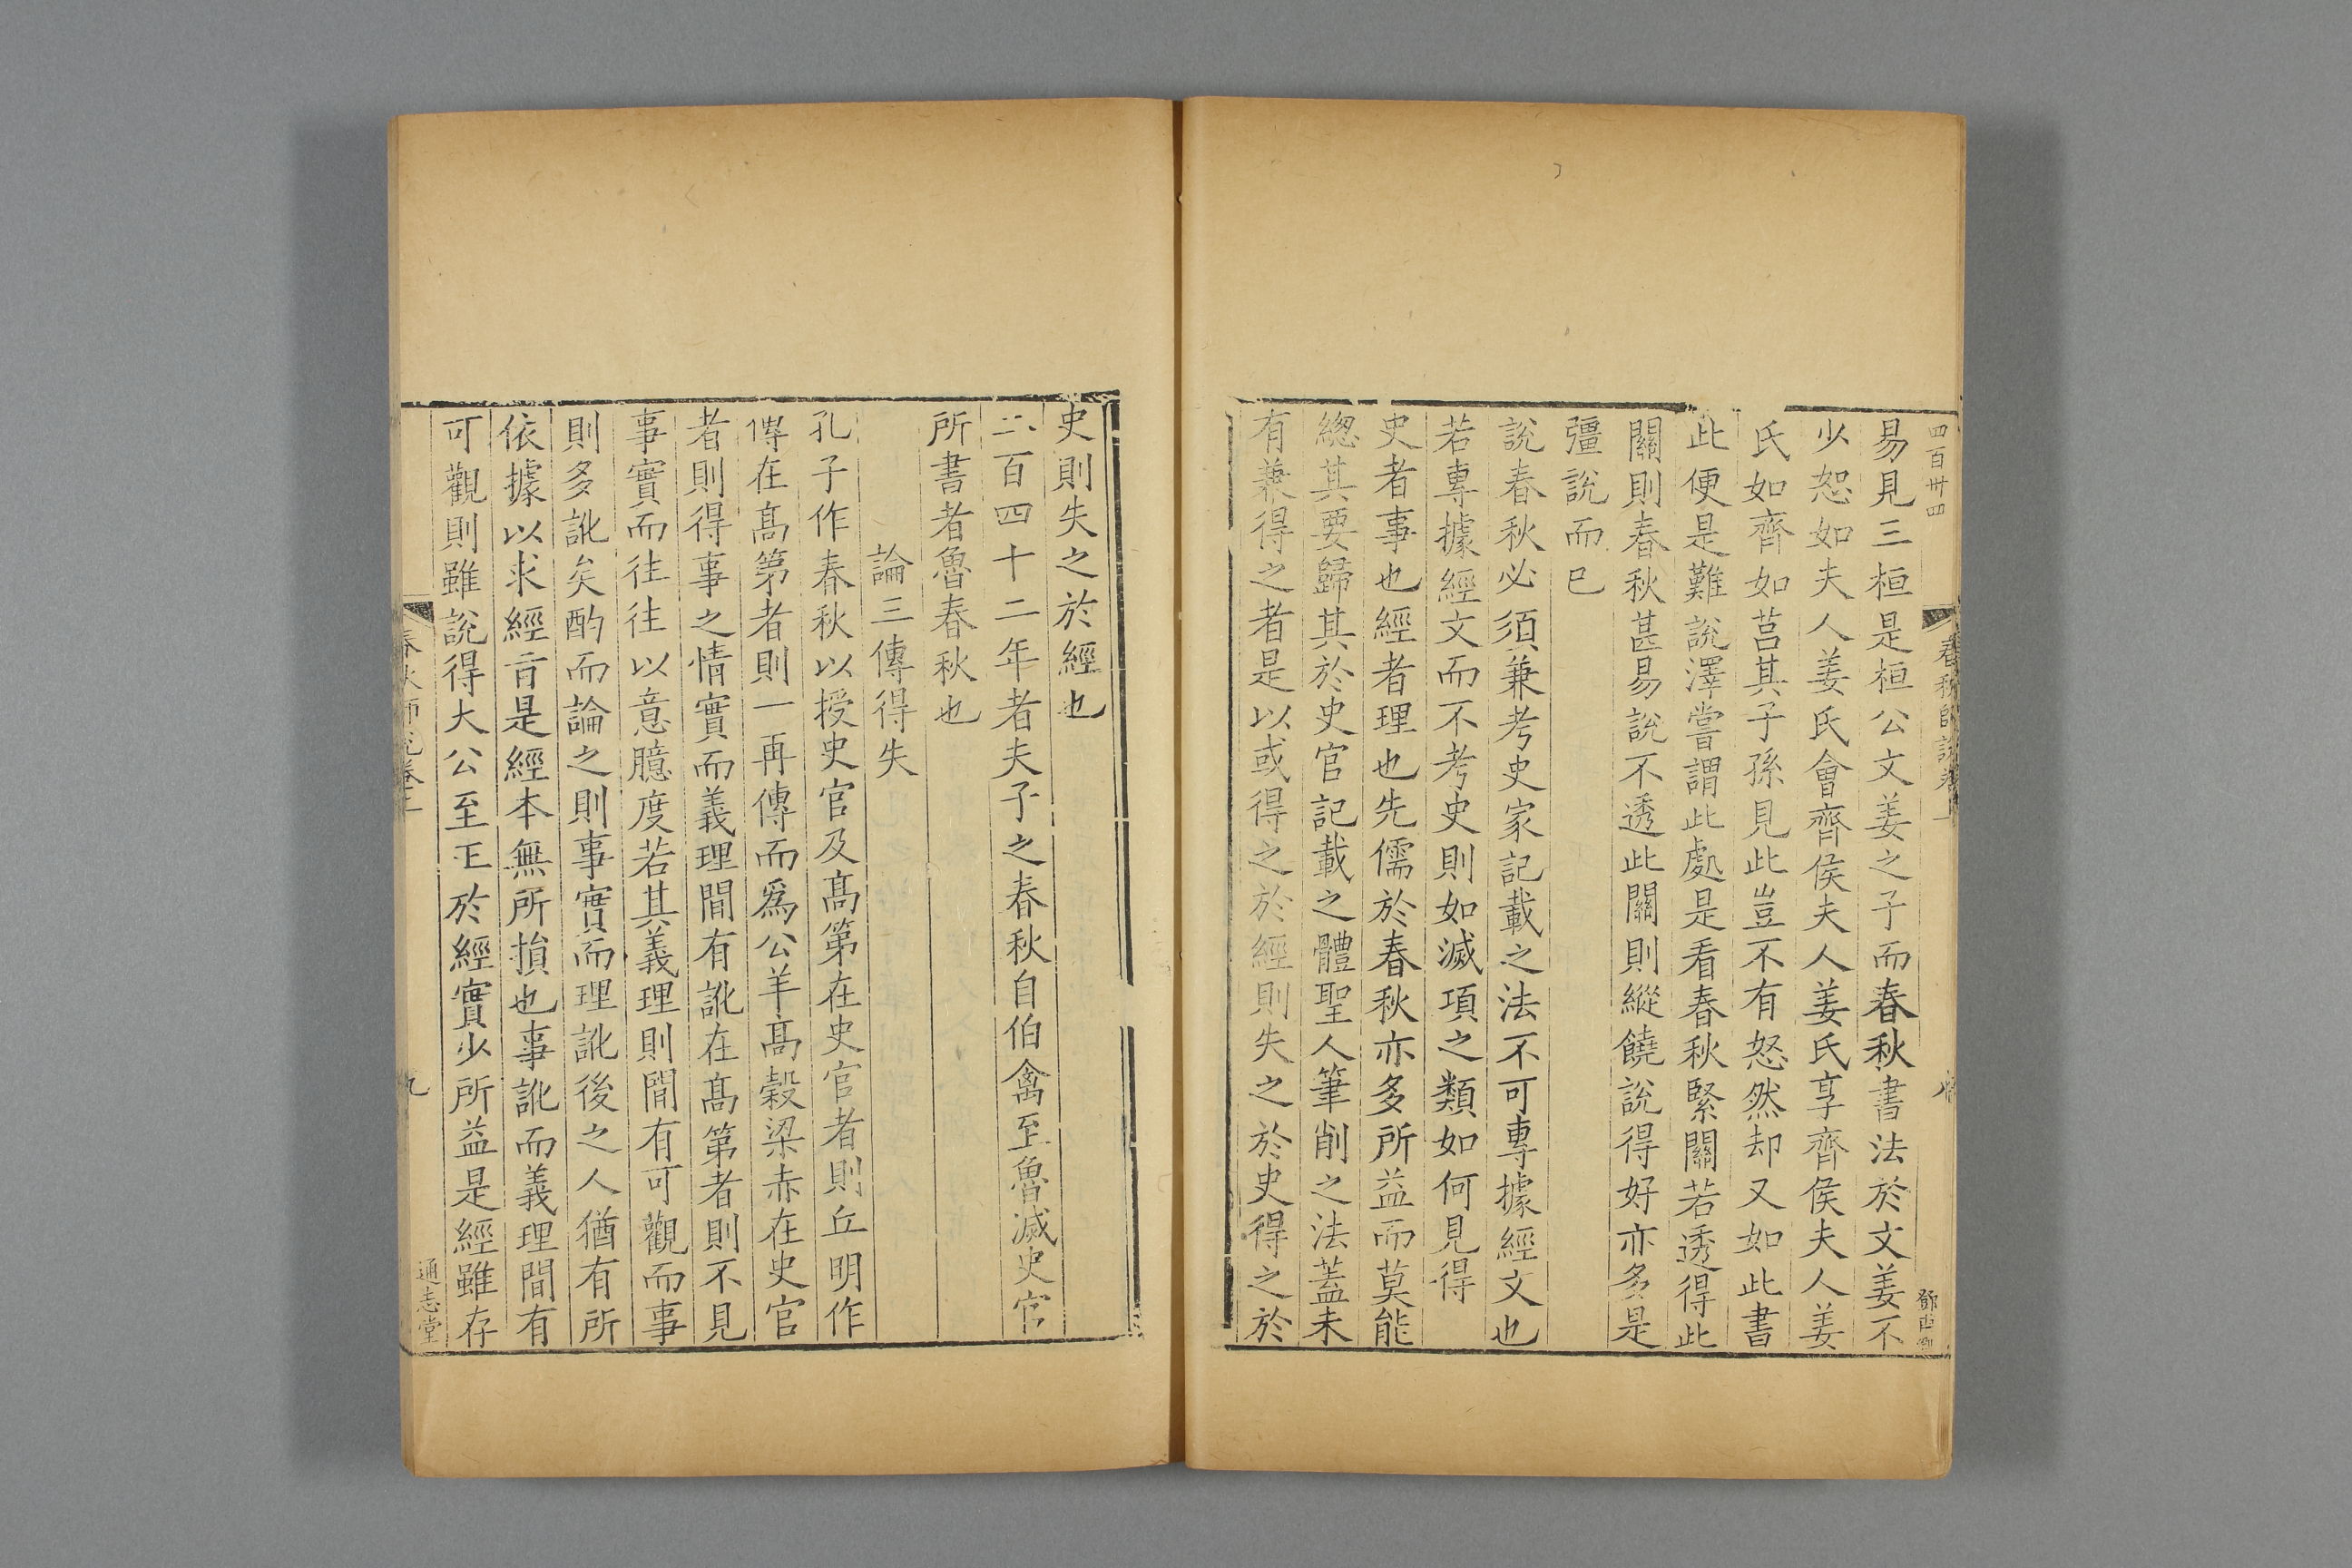 四百卅四
易見三桓是桓公文姜之子而春秋書法於文姜不
少恕如夫人姜氏會齊侯夫人姜氏享齊侯夫人姜
氏如齊如莒其子孫見此豈不有怒然却又如此書
此便是難說澤嘗謂此處是看春秋緊關若透得此
關則春秋甚易說不透此關則縱饒說得好亦多是
彊說而已
說春秋必須兼考史家記載之法不可專據經文也
若專據經文而不考史則如滅項之類如何見得
史者事也經者理也先儒於春秋亦多所益而莫能
總其要歸其於史官記載之體聖人筆削之法蓋未
有兼得之者是以或得之於經則失之於史得之於
史則失之於經也
二百四十二年者夫子之春秋自伯禽至魯滅史官
所書者魯春秋也
論三傳得失
孔子作春秋以授史官及高第在史官者則丘明作
傳在高第者則一再傳而爲公羊高穀梁赤在史官
者則得事之情實而義理間有訛在高第者則不見
事實而往往以意臆度若其義理則間有可觀而事
則多訛矣酌而論之則事實而理訛後之人猶有所
依據以求經旨是經本無所損也事訛而義理間有
可觀則雖說得大公至正於經實少所益是經雖存
春秋師說卷上
九
通志堂